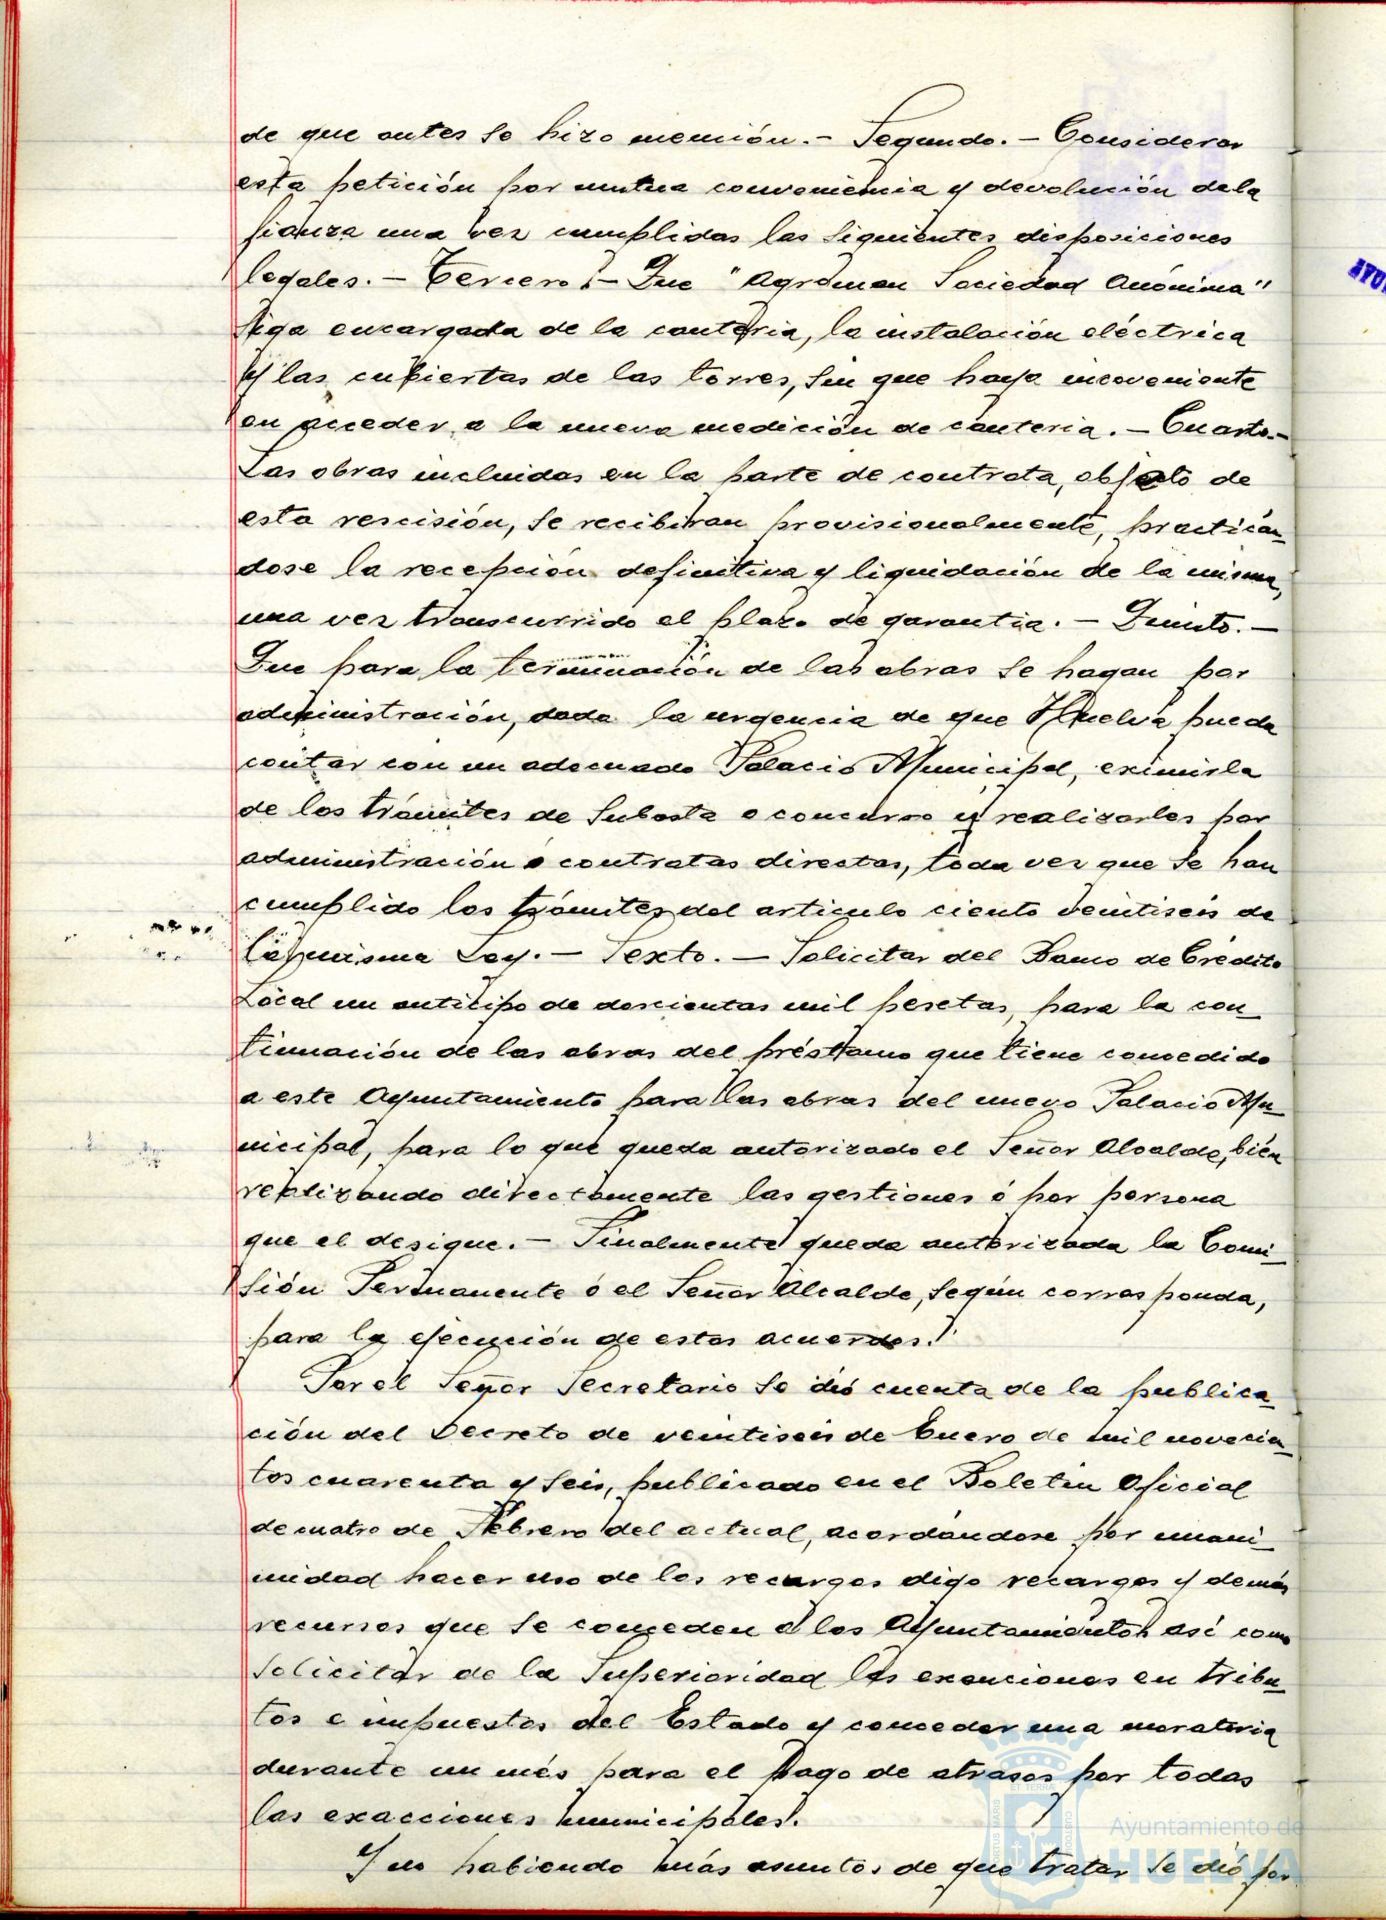 de que antes se hizo mención.- Segundo. - Considerar
esta petición por mutua conveniencia y devolución de la
fianza una vez cumplidas las siguientes disposiciones
legales. - Tercero.- Que "Agroman Sociedad Anónima"
siga encargada de la canteria, la instalación eléctrica
y las cubiertas de las torres, sin que haya incoveniente
en acceder a la nueva medición de canteria. - Cuarto.-
Las obras incluidas en la parte de contrata, objeto de
esta rescisión, se recibiran provisionalmente, practicán_
dose la recepción definitiva y liquidación de la misma,
una vez transcurrido el plazo de garantia. - Quinto. -
Que para la terminación de las obras se hagan por
administración, dada la urgencia de que Huelva pueda
contar con un adecuado Palacio Municipal, eximirla
de los trámites de subasta o concurso y realizarlas por
administración ó contratas directas, toda vez que se han
cumplido los trámites del articulo ciento veintiseis de
la misma Ley. - Sexto. - Solicitar del Banco de Crédito
Local un anticipo de doscientas mil pesetas, para la con_
tinuación de las obras del préstamo que tiene concedido
a este Ayuntamiento para las obras del nuevo Palacio Mu_
nicipal, para lo que queda autorizado el Señor Alcalde, bién
realizando directamente las gestiones ó por persona
que el desigue. - Finalmente queda autorizada la Comi_
sión Permanente ó el Señor Alcalde, según corresponda,
para la ejecución de estos acuerdos.
Por el Señor Secretario se dió cuenta de la publica_
ción del Decreto de veintiseis de Enero de mil novecien_
tos cuarenta y seis, publicado en el Boletin Oficial
de cuatro de Febrero del actual, acordándose por unani_
midad hacer uso de los recurgos digo recargos y demás
recursos que se conceden a los Ayuntamientos así como
solicitar de la Superioridad las exenciones en tribu_
tos e impuestos del Estado y conceder una moratoria
durante un més para el pago de atrasos por todas
las exacciones municipales.
Y no habiendo más asuntos de que tratar se dió por
AYU
PORTUS MARIS
ET TERRA
CUSTODIA
Ayuntamiento de
HUELVA